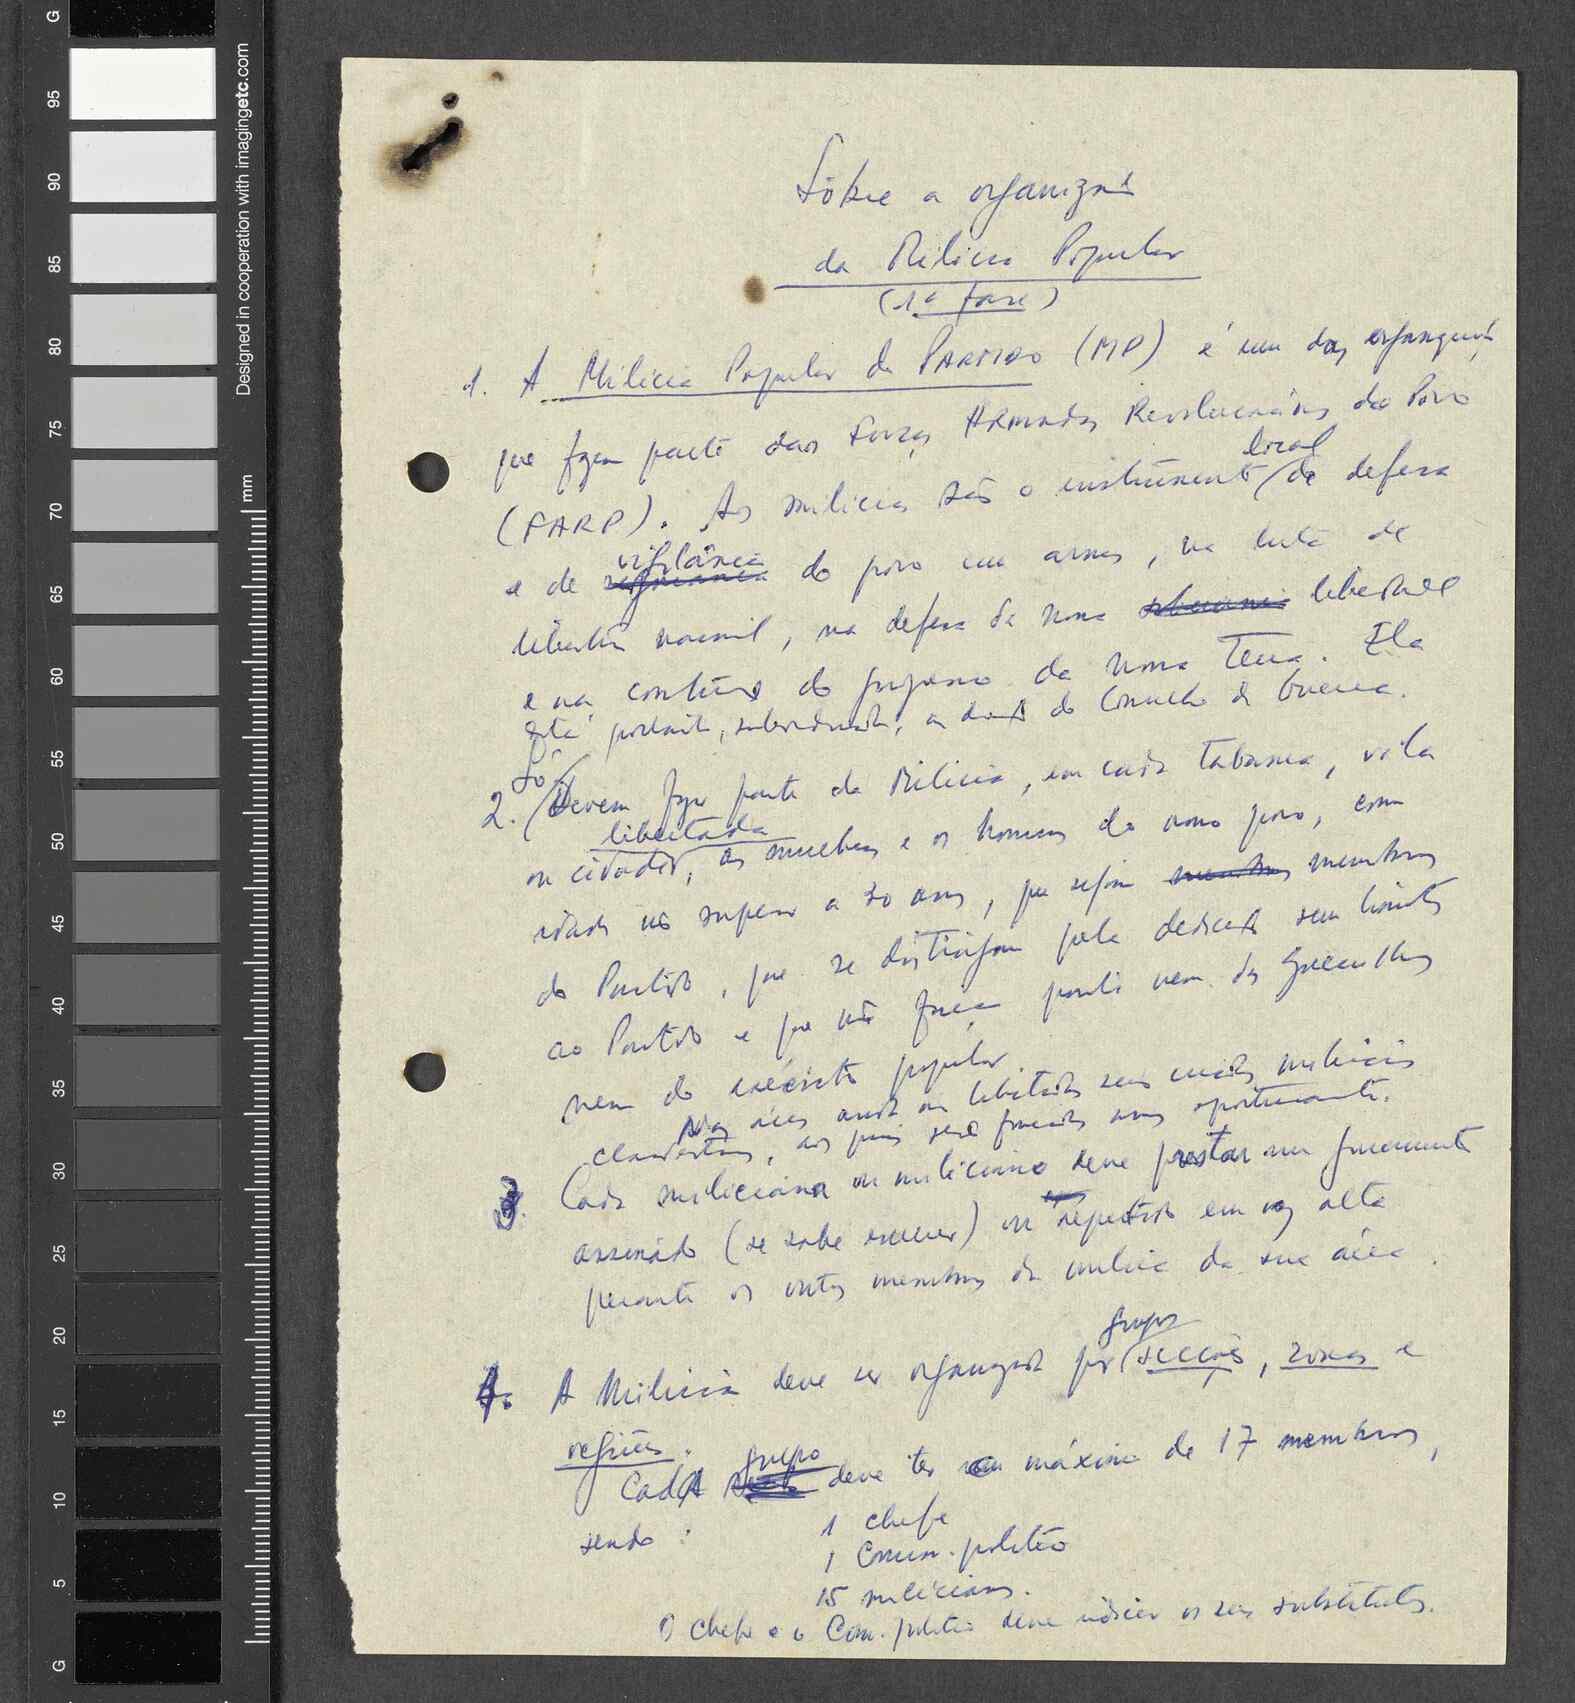 Sôbre a organização
da Milícia Popular
(1ª fase)
1. A Milícia Popular do PARTIDO (MP) é uma das organizações
que fazem parte das Forças ARMADAS Revolucionárias do Povo
(FARP). As milícias são o instrumento local de defesa
e de vigilância do povo em armas, na luta de
libertação nacional, na defesa da nossa liberdade
e na construção do progresso da nossa Terra. Ela
está, portanto, subordinada, ao do Conselho de Guerra.
2. Só devem fazer parte da Milícia, em cada tabanca, vila
ou cidade libertada, as mulheres e os homens do nosso povo, com
idade não superior a 50 anos, que sejam membros
do Partido, que se distinguem pela dedicação sem limites
ao Partido e que não façam parte nem das guerrilhas
nem do exército popular
Nas áreas ainda não libertadas serão criadas milícias
clandestinas, às quais serão fornecidas armas oportunamente.
3. Cada miliciana ou miliciano deve prestar um juramento
assinado (se sabe escrever) ou repetido em voz alta
perante os outros membros da milícia da sua área.
4. A Milícia deve ser organizada por grupos, secções, zonas e
regiões.
Cada grupo deve ter um máximo de 17 membros,
sendo:
1 chefe
1 Comiss. político
15 milicianos.
O chefe e o Com. político deve indicar os seus substitutos.
Designed in cooperation with imagingetc.com
mm
G
95
90
85
80
75
70
65
60
55
50
45
40
35
30
25
20
15
10
5
G